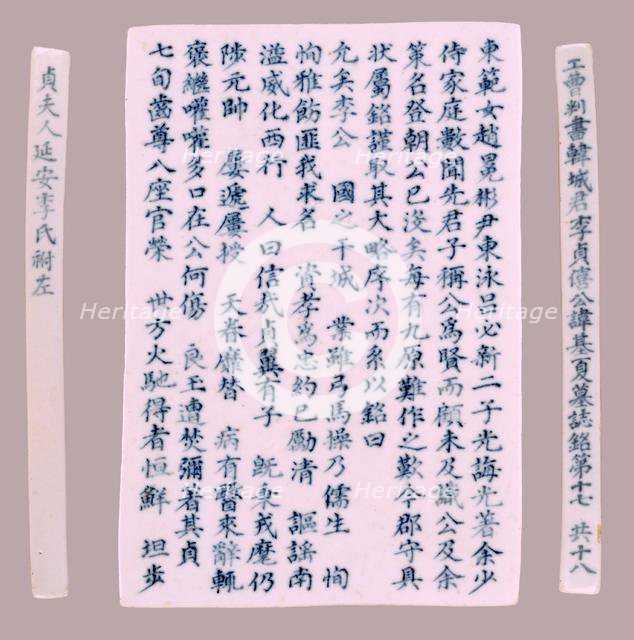 工曹判書韓城君李貞僖公諱基夏墓誌銘第十七 共十八
東範女趙冕彬尹東泳呂必新二子光誨光著余少
侍家庭數聞先君子稱公爲賢而顧未及識公及余
策名登朝公已沒矣每有九原難作之歎今郡守具
狀屬銘謹取其大略序次而系以銘曰
允矣李公 國之干城 業雖弓馬操乃儒生 恂
恂雅飭匪我求名 資孝爲忠約己勵清 謳謠南
溢威化西行 人曰信哉貞翼有子 旣秉戎麾仍
陟元帥 屢遞屢授 天眷靡替 病有醫來辭輒
褒繼嚾嚾多口在公何傷 良玉遭焚彌著其貞
七旬齒尊八座官榮 世方火馳得者恒鮮 坦步
貞夫人延安李氏祔左
Heritage
Heritage
Heritage
Heritage
Heritage
Heritage